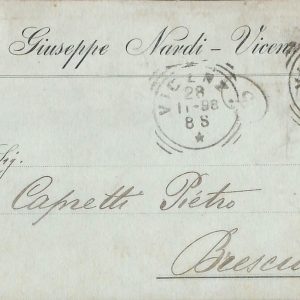 Giuseppe Nardi - Vicen
VICENZA
28
11-98
8 S
Sig.
Capretti Pietro
Bresci